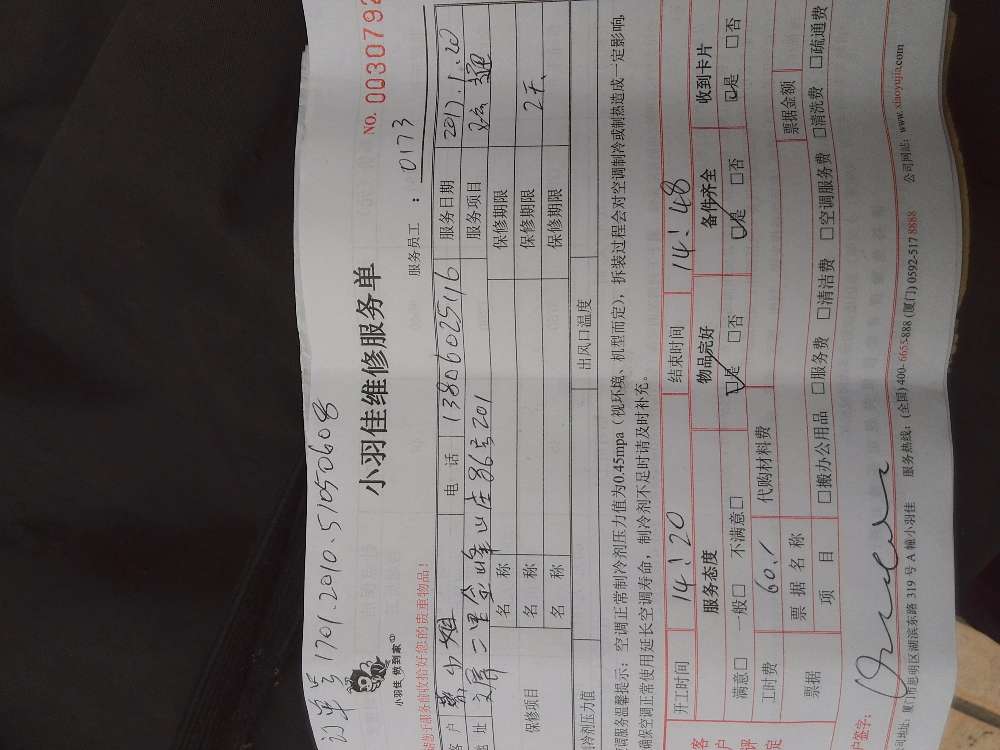 订单号 1701.2010.51050608
小羽佳 做到家
小羽佳维修服务单
NO. 0030792
服务员工 : 0173
请您于服务前收拾好您的贵重物品!
客 户 小姐 电 话 13806025416 服务日期 2017.1.20
地 址 文屏二里金峰山庄86号201 服务项目 通
保修项目
名 称 保修期限
名 称 保修期限 2天
名 称 保修期限
制冷剂压力值 出风口温度
空调服务温馨提示:空调正常制冷剂压力值为0.45mpa(视环境、机型而定),拆装过程会对空调制冷或制热造成一定影响,
确保空调正常使用延长空调寿命,制冷剂不足时请及时补充。
开工时间 14:20 结束时间 14:48
客户评定
服务态度 物品完好 备件齐全 收到卡片
满意□ 一般□ 不满意□ □是 □否 □是 □否 □是 □否
工时费 60.1 代购材料费
票据 票据名称 票据金额
项 目 □搬办公用品 □服务费 □清洁费 □空调服务费 □清洗费 □疏通费
客户签字:
公司地址:厦门市思明区湖滨东路 319 号 A 幢小羽佳 服务热线:(全国) 400-6655-888 (厦门) 0592-517 8888 公司网站:www.xiaoyujia.com